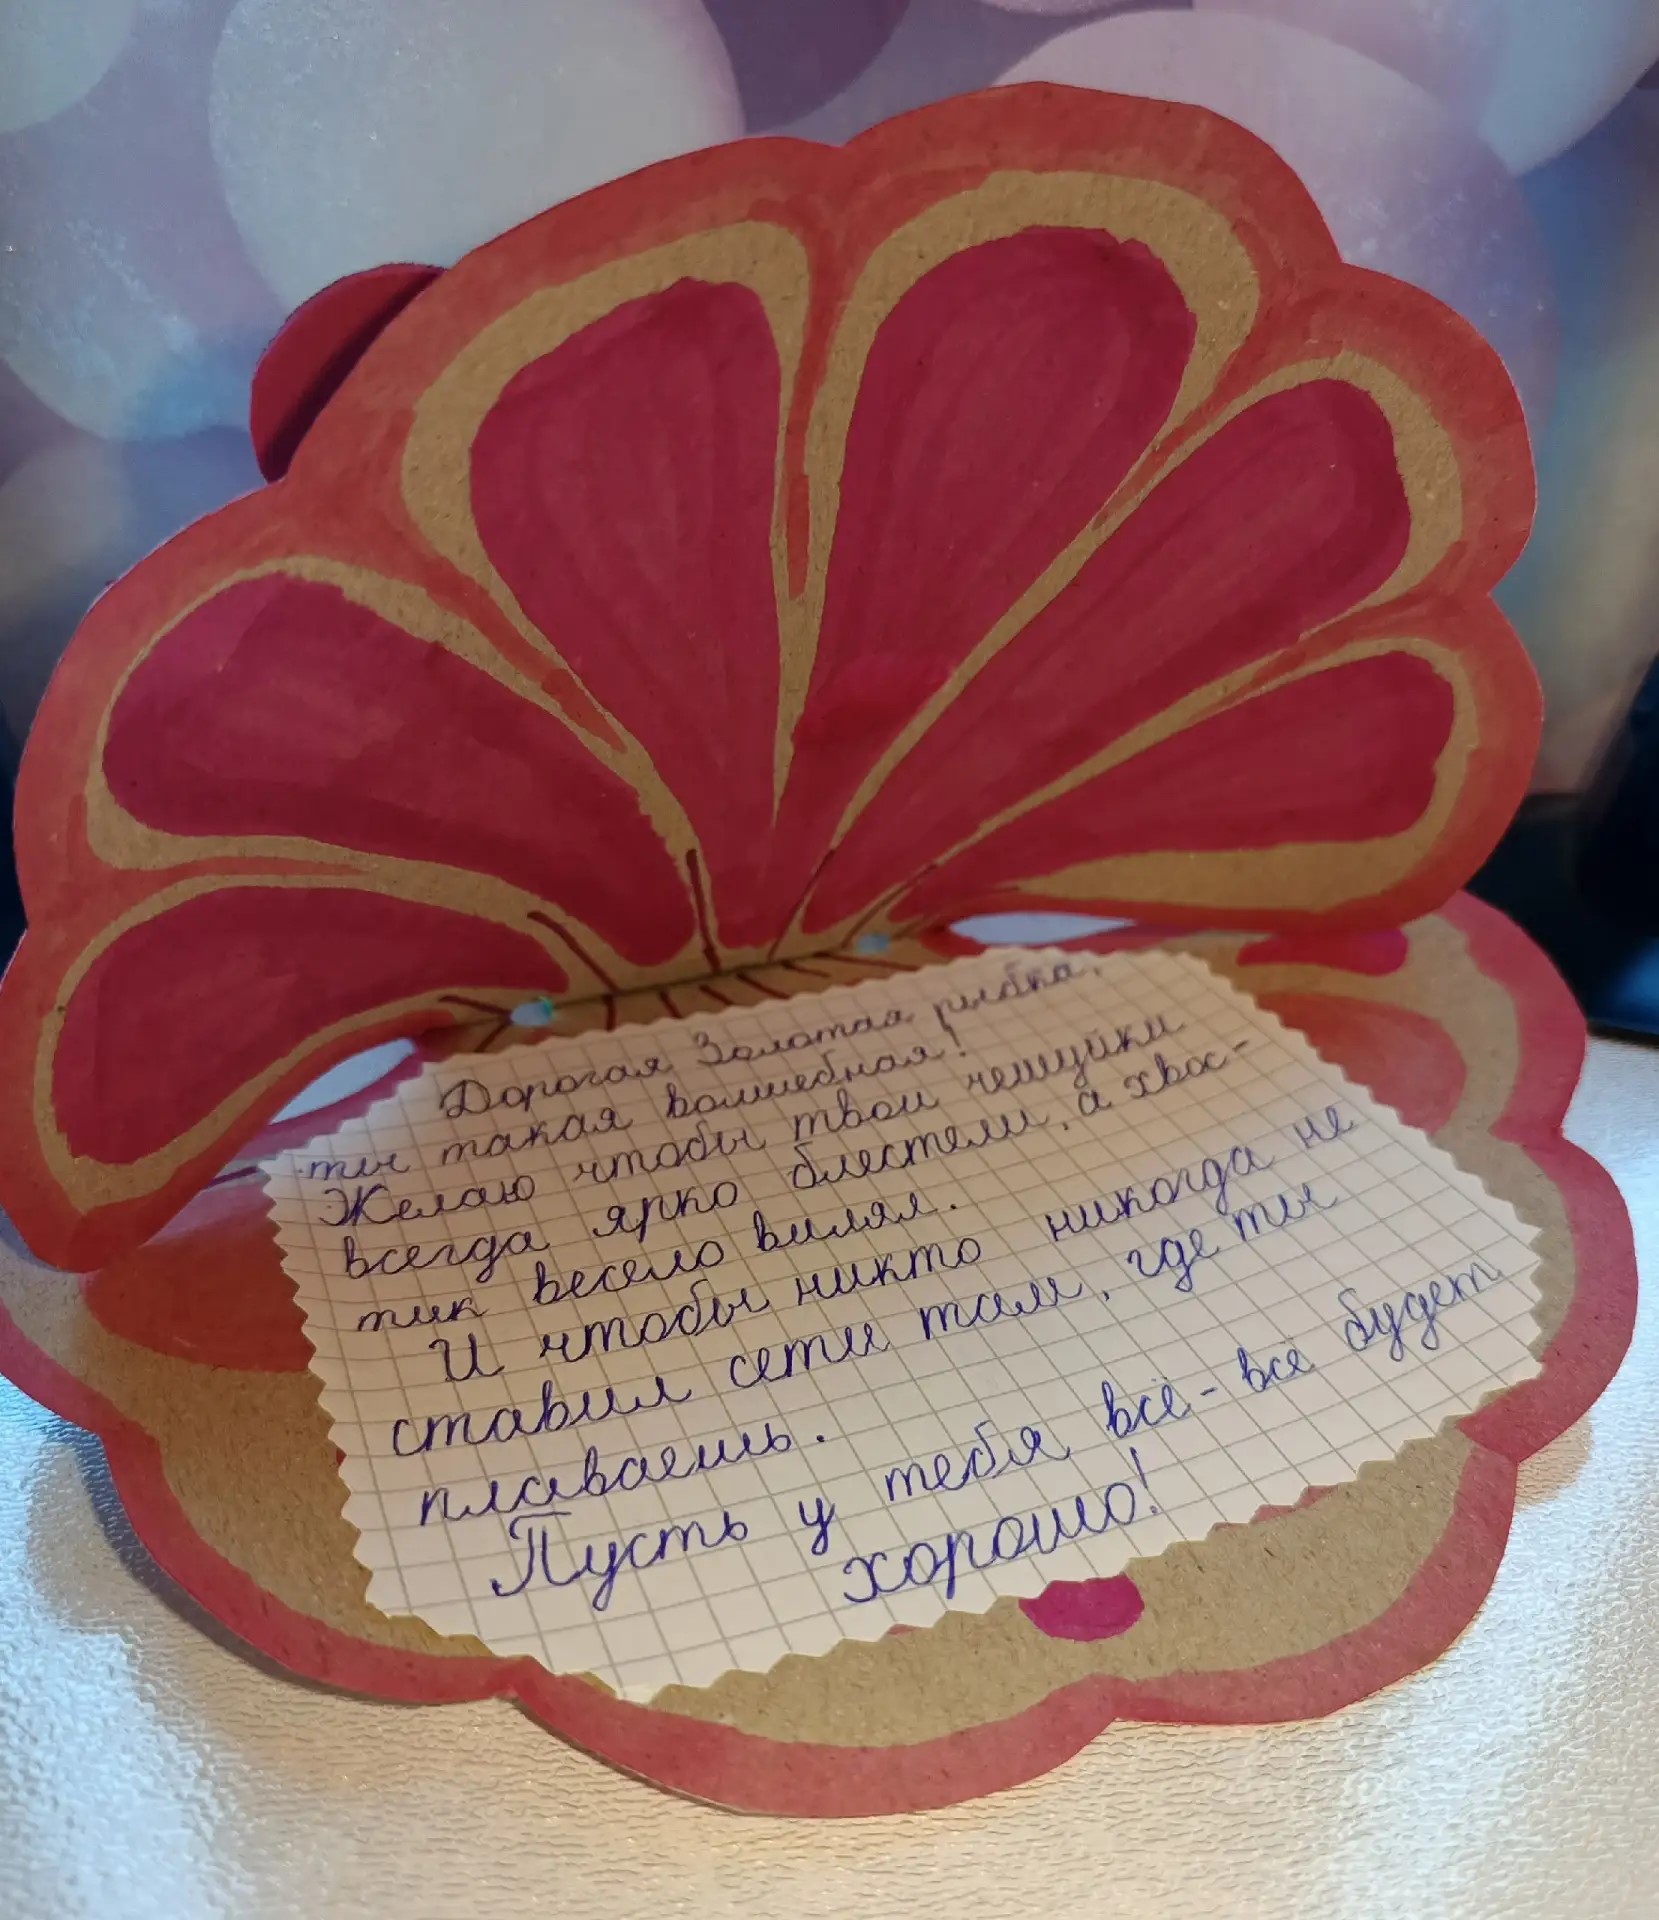 Дорогая Золотая рыбка,
ты такая волшебная!
Желаю чтобы твои чешуйки
всегда ярко блестели, а хвос-
тик весело вилял.
И чтобы никто никогда не
ставил сети там, где ты
плаваешь.
Пусть у тебя всё-всё будет
хорошо!